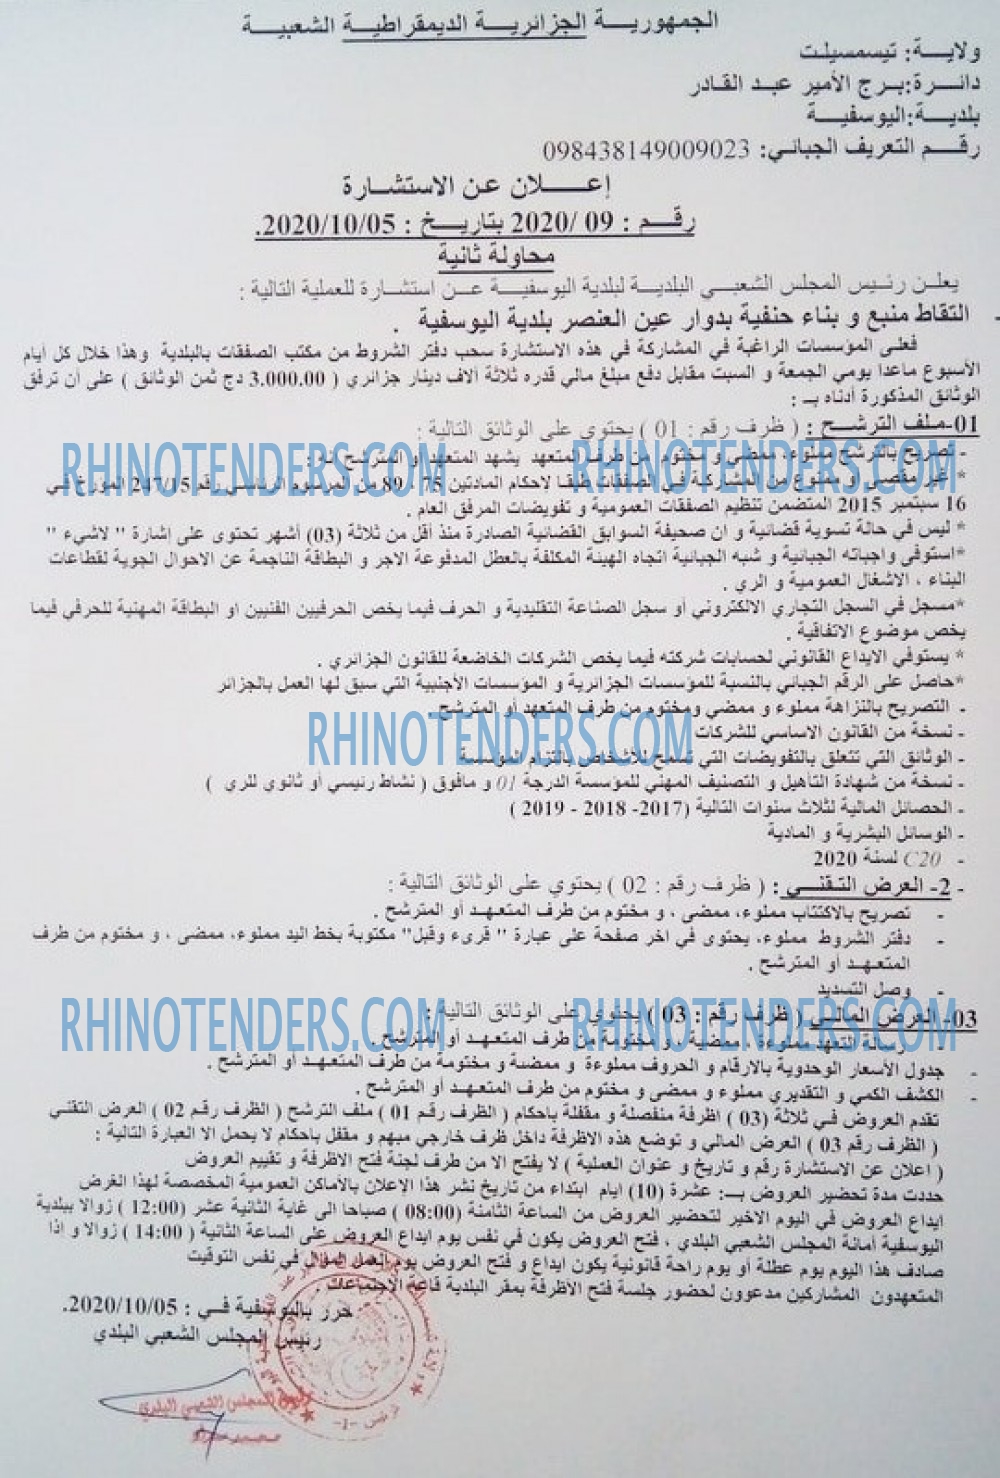 الجمهورية الجزائرية الديمقراطية الشعبية
ولاية: تيسمسيلت
دائرة: برج الأمير عبد القادر
بلدية: اليوسفية
رقم التعريف الجبائي: 098438149009023
إعلان عن الاستشارة
رقم : 09 /2020 بتاريخ : 2020/10/05.
محاولة ثانية
يعلن رئيس المجلس الشعبي البلدية لبلدية اليوسفية عن استشارة للعملية التالية :
- التقاط منبع و بناء حنفية بدوار عين العنصر بلدية اليوسفية .
فعلى المؤسسات الراغبة في المشاركة في هذه الاستشارة سحب دفتر الشروط من مكتب الصفقات بالبلدية وهذا خلال كل أيام
الأسبوع ماعدا يومي الجمعة و السبت مقابل دفع مبلغ مالي قدره ثلاثة آلاف دينار جزائري ( 3.000.00 دج ثمن الوثائق ) على أن ترفق
الوثائق المذكورة أدناه بـ :
01-ملف الترشح : ( ظرف رقم : 01 ) يحتوي على الوثائق التالية :
- تصريح بالترشح مملوء، ممضي و مختوم من طرف المتعهد يشهد المتعهد أو المترشح أنه :
* غير مقصي أو ممنوع من المشاركة في الصفقات طبقا لاحكام المادتين 75 - 89 من المرسوم الرئاسي رقم 247/15 المؤرخ في
16 سبتمبر 2015 المتضمن تنظيم الصفقات العمومية و تفويضات المرفق العام .
* ليس في حالة تسوية قضائية و ان صحيفة السوابق القضائية الصادرة منذ أقل من ثلاثة (03) أشهر تحتوى على إشارة " لاشيء "
*استوفى واجباته الجبائية و شبه الجبائية اتجاه الهيئة المكلفة بالعطل المدفوعة الاجر و البطالة الناجمة عن الاحوال الجوية لقطاعات
البناء ، الاشغال العمومية و الري .
*مسجل في السجل التجاري الالكتروني أو سجل الصناعة التقليدية و الحرف فيما يخص الحرفيين الفنيين او البطاقة المهنية للحرفي فيما
يخص موضوع الاتفاقية .
* يستوفي الايداع القانوني لحسابات شركته فيما يخص الشركات الخاضعة للقانون الجزائري .
*حاصل على الرقم الجبائي بالنسبة للمؤسسات الجزائرية و المؤسسات الأجنبية التي سبق لها العمل بالجزائر
- التصريح بالنزاهة مملوء و ممضي ومختوم من طرف المتعهد أو المترشح
- نسخة من القانون الاساسي للشركات
- الوثائق التي تتعلق بالتفويضات التي تسمح للأشخاص بالتزام المؤسسة
- نسخة من شهادة التأهيل و التصنيف المهني للمؤسسة الدرجة 01 و مافوق ( نشاط رئيسي أو ثانوي للري )
- الحصائل المالية لثلاث سنوات التالية (2017- 2018 - 2019 )
- الوسائل البشرية و المادية
- C20 لسنة 2020
- 2- العرض التقني : ( ظرف رقم : 02 ) يحتوي على الوثائق التالية :
- تصريح بالاكتتاب مملوء، ممضى ، و مختوم من طرف المتعهد أو المترشح .
- دفتر الشروط مملوء، يحتوى في اخر صفحة على عبارة " قرىء وقبل" مكتوبة بخط اليد مملوء، ممضى ، و مختوم من طرف
المتعهد أو المترشح .
- وصل التسديد
03- العرض المالي ( ظرف رقم : 03 ) يحتوي على الوثائق التالية :
- رسالة التعهد مملوءة ، ممضية ، و مختومة من طرف المتعهد أو المترشح .
- جدول الأسعار الوحدوية بالارقام و الحروف مملوءة و ممضة و مختومة من طرف المتعهد أو المترشح .
- الكشف الكمي و التقديري مملوء و ممضى و مختوم من طرف المتعهد أو المترشح .
تقدم العروض في ثلاثة (03 ) اظرفة منفصلة و مقفلة باحكام ( الظرف رقم 01 ) ملف الترشح ( الظرف رقم 02 ) العرض التقني
( الظرف رقم 03 ) العرض المالي و توضع هذه الاظرفة داخل ظرف خارجي مبهم و مقفل باحكام لا يحمل الا العبارة التالية :
( اعلان عن الاستشارة رقم و تاريخ و عنوان العملية ) لا يفتح الا من طرف لجنة فتح الاظرفة و تقييم العروض
حددت مدة تحضير العروض بـ: عشرة (10) ايام ابتداء من تاريخ نشر هذا الإعلان بالأماكن العمومية المخصصة لهذا الغرض
ايداع العروض في اليوم الاخير لتحضير العروض من الساعة الثامنة (08:00 ) صباحا الى غاية الثانية عشر (12:00 ) زوالا ببلدية
اليوسفية أمانة المجلس الشعبي البلدي ، فتح العروض يكون في نفس يوم ايداع العروض على الساعة الثانية ( 14:00 ) زوالا و إذا
صادف هذا اليوم يوم عطلة أو يوم راحة قانونية يكون ايداع و فتح العروض يوم العمل الموالي في نفس التوقيت
المتعهدون المشاركين مدعوون لحضور جلسة فتح الأظرفة بمقر البلدية قاعة الاجتماعات
حرر باليوسفية في : 2020/10/05.
رئيس المجلس الشعبي البلدي
رئيس المجلس الشعبي البلدي
RHINOTENDERS.COM
RHINOTENDERS.COM
RHINOTENDERS.COM
RHINOTENDERS.COM
RHINOTENDERS.COM